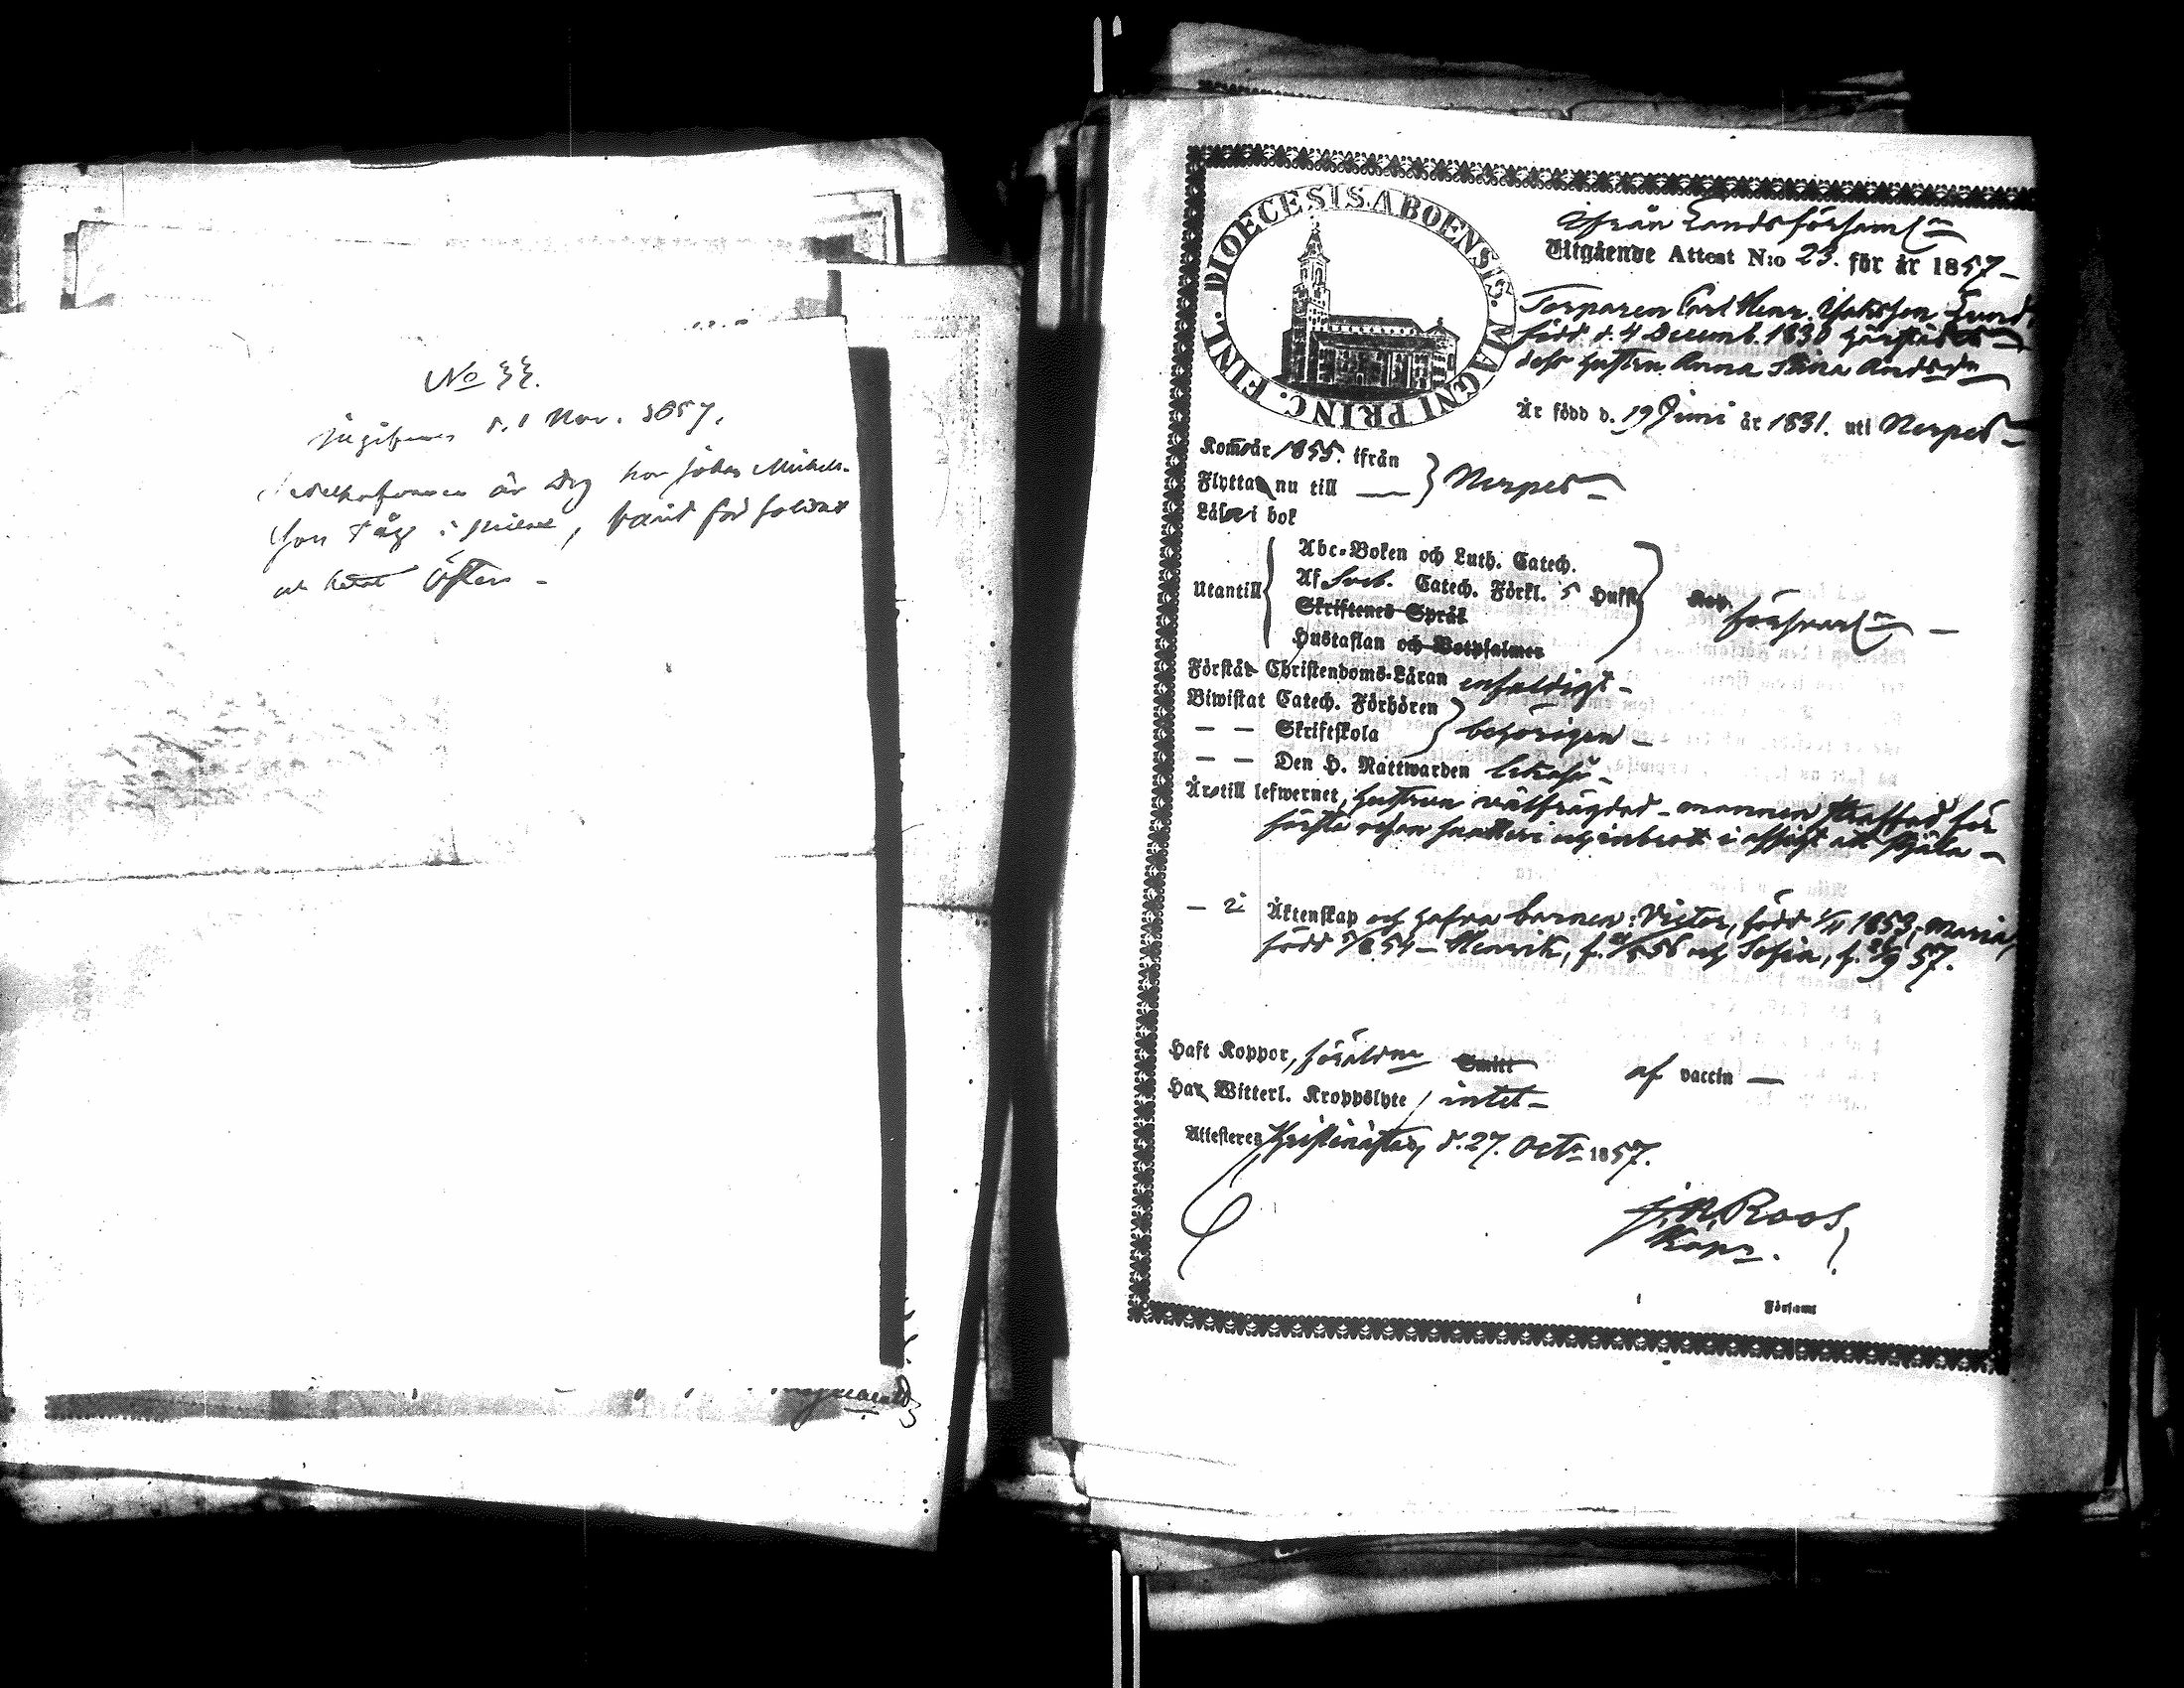 No 33.
d. 1 Nov. 1857.
är drg hos Johan Michels-
son Tåg i
och Östen -
DIOECESIS. ABOENSIS. MAGNI PRINC. FINL.
Ifrån Landsförsaml
Utgående Attest N:o 23. för år 1857 -
Torparen Carl Henr. Isaksson
född d. 4 Decemb. 1830
dess hustru Anna Stina Andsdr
Är född d. 19 Juni år 1831. uti Nerpes -
Kom år 1855. ifrån
Flytta nu till — } Nerpes -
Läsa i bok
Utantill
Abc-Boken och Luth. Catech.
Af Sveb. Catech. Förkl. 5 Hufst
Skriftenes Språk
Hustaflan och Botpsalmer
försvarl
Förstår Christendoms-Läran enfaldigt -
Biwistat Catech. Förhören
— — Skriftskola } behörigen -
— — Den H. Nattwarden likaså -
Är till lefwernet, hustrun välfrägdad - mannen straffad för
första resan snatteri och inbrott i afsigt att stjäla -
— i Äktenskap och hafva barnen: Victor, född 1/11 1853, Maria,
född 5/8 54 - Henrik, f. 56 och Sofia, f. /9 57.
Haft Koppor, föräldrne Smitt af vaccin —
Har Witterl. Kroppslyte, intet -
Attesterar Kristinestad, d. 27. Octr 1857.
Roos
Kapn.
Församl